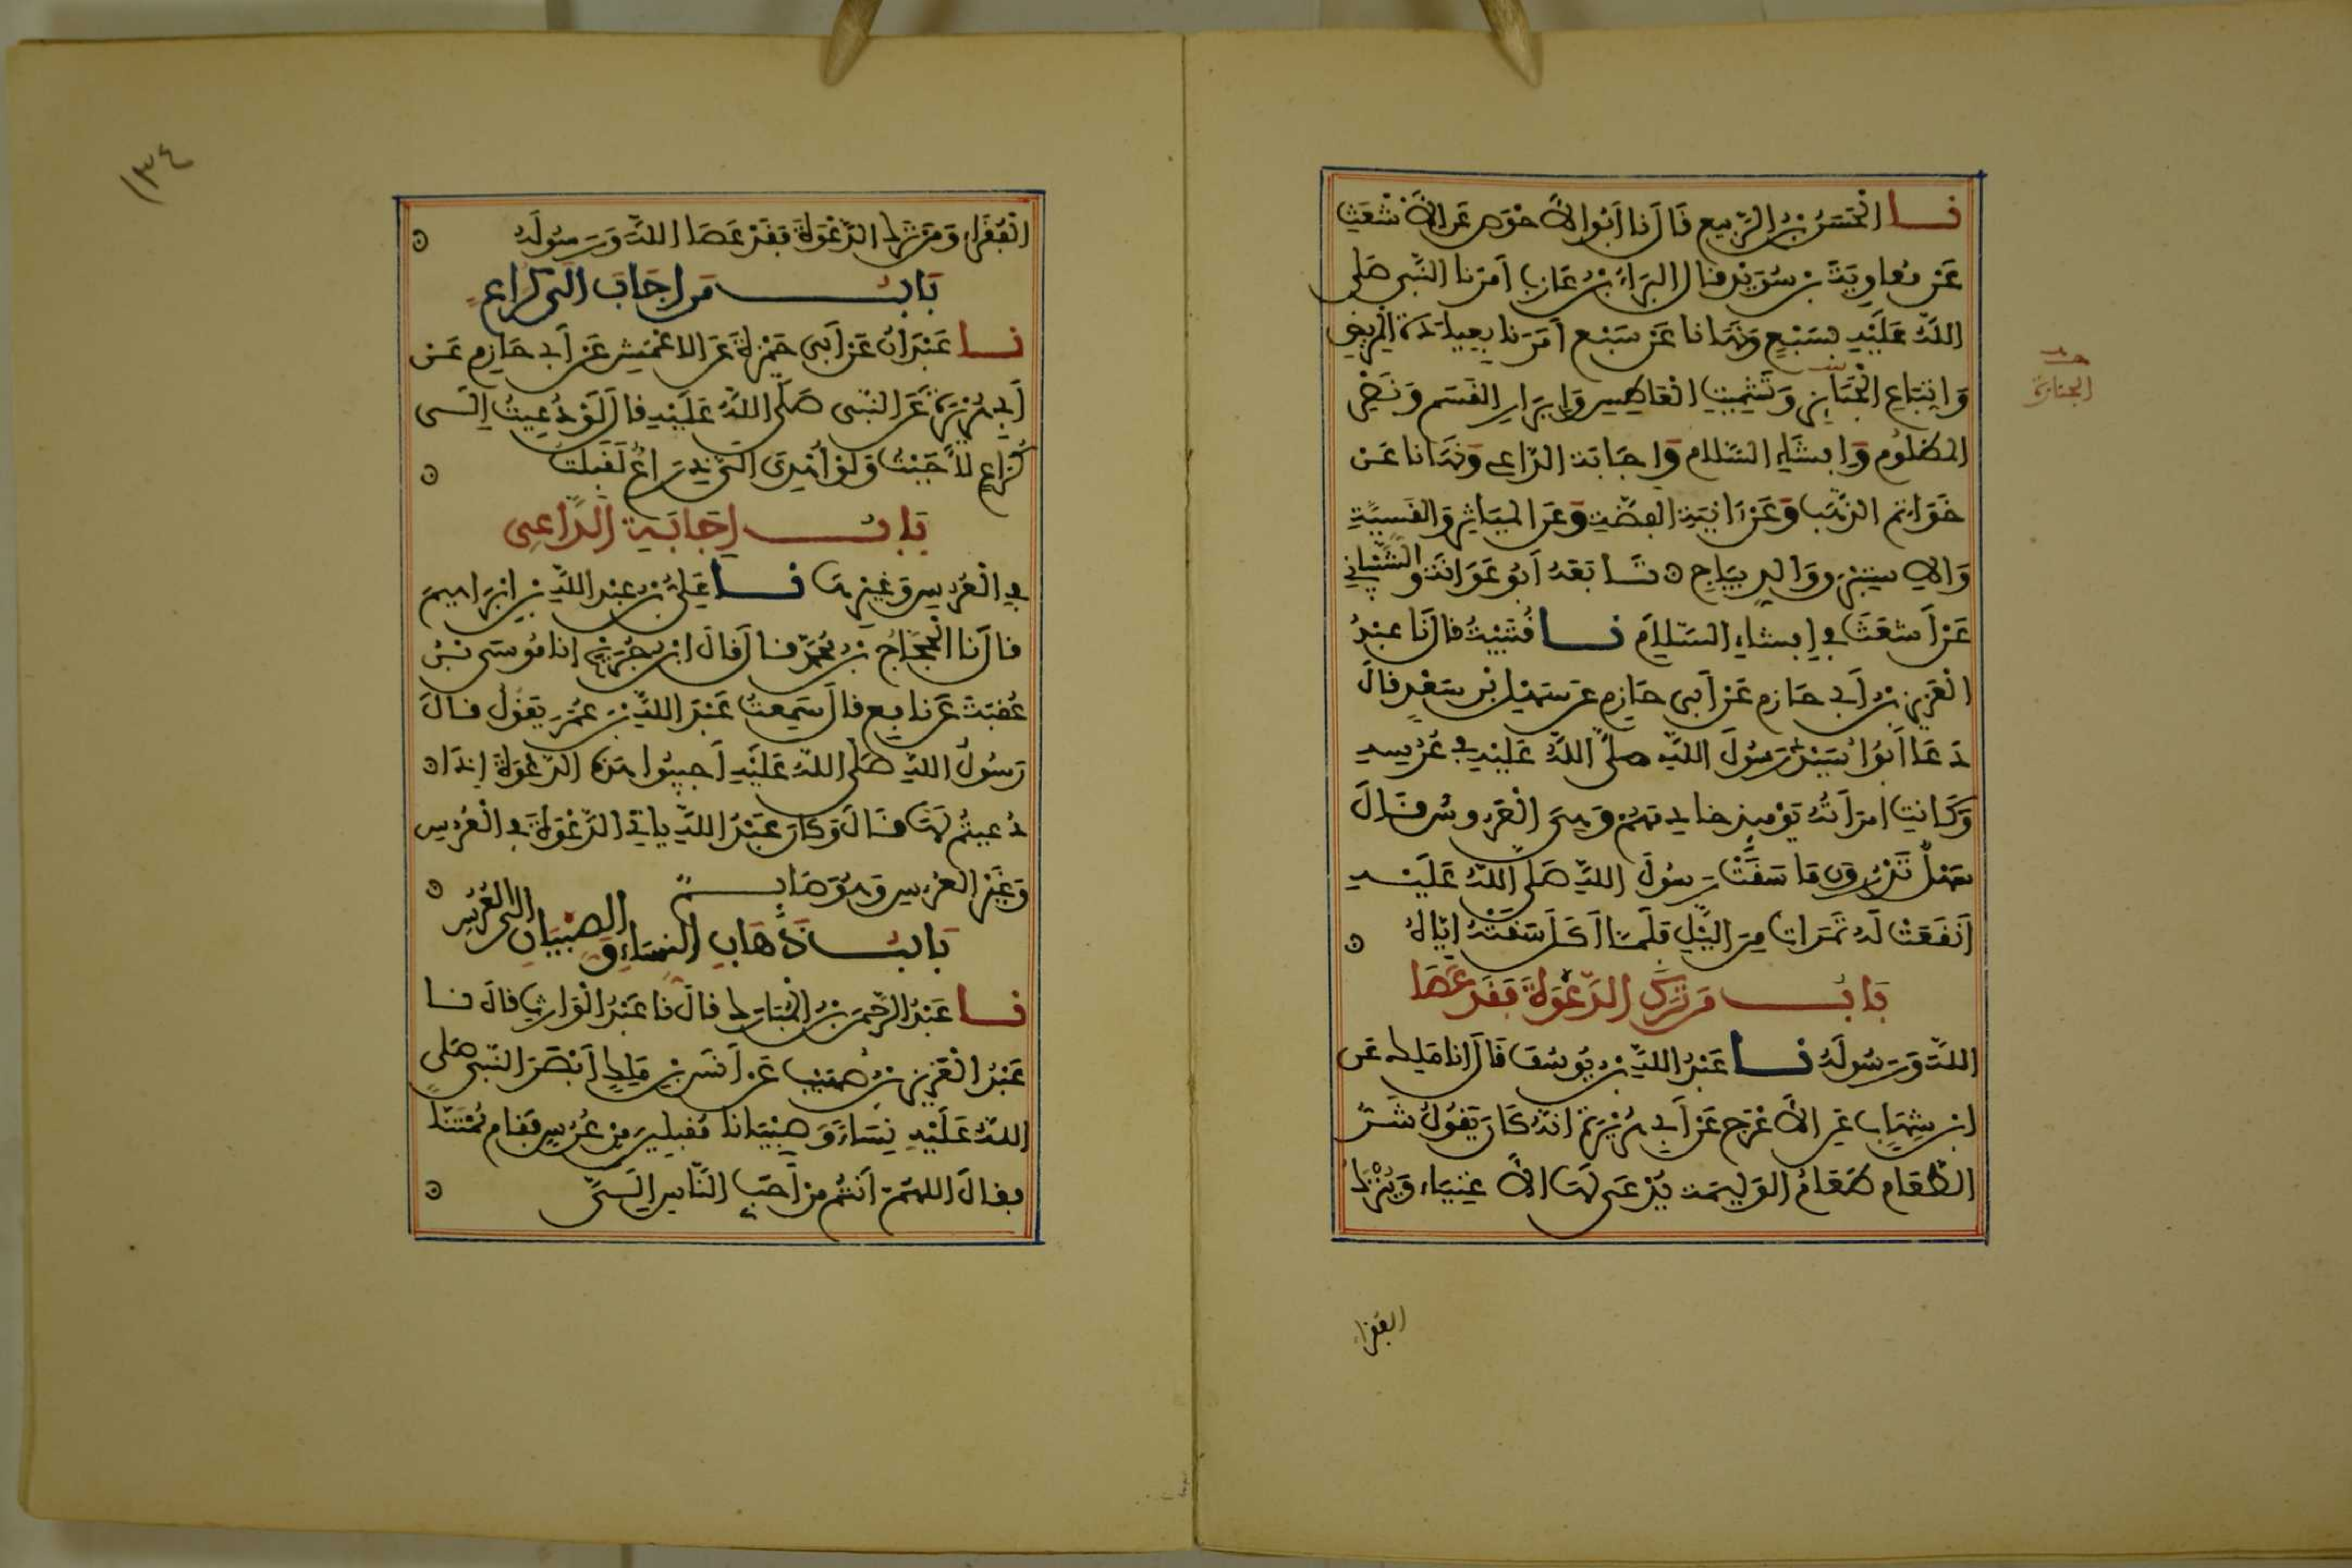 نا الْحَسَنُ بْنُ الرَّبِيعِ قَالَ نا أَبُو الأَحْوَصِ عَنِ الأَشْعَثِ
عَنْ مُعَاوِيَةَ بْنِ سُوَيْدٍ قال الْبَرَاءُ بْنُ عَازِبٍ أَمَرَنَا النَّبِي صَلى
اللَّهُ عَلَيْهِ بِسَبْعٍ وَنَهَانَا عَنْ سَبْعٍ أَمَرَنَا بِعِيَادَةِ الْمَرِيضِ
وَاتِّبَاعِ الْجَنَائِزِ وَتَشْمِيتِ الْعَاطِسِ وَإِبْرَارِ الْقَسَمِ وَنَصْرِ
الْمَظْلُومِ وَإِفْشَاءِ السَّلَامِ وَإِجَابَةِ الدَّاعِي وَنَهَانَا عَنْ
خَوَاتِمِ الذَّهَبِ وَعَنْ آنِيَةِ الْفِضَّةِ وَعَنِ الْمَيَاثِرِ وَالْقَسِّيَّةِ
وَالإِسْتَبْرَقِ وَالدِّيبَاجِ تَابَعَهُ أَبُو عَوَانَةَ وَالشَّيْبَانِي
عَنْ أَشْعَثَ فِي إِفْشَاءِ السَّلَامِ نا قُتَيْبَةُ قَالَ نَا عَبْدُ
الْعَزِيزِ بْنُ أَبِي حَازِمٍ عَنْ أَبِي حَازِمٍ عَنْ سَهْلِ بْنِ سَعْدٍ قَالَ
دَعَا أَبُو أُسَيْدٍ رَسُولَ اللَّهِ صلى اللَّهُ عَلَيْهِ فِي عُرْسِهِ
وَكَانَتِ امْرَأَتُهُ يَوْمَئِذٍ خَادِمَهُمْ وَهِيَ الْعَرُوسُ قَالَ
سَهْلٌ تَدْرُونَ مَا سَقَتْ رَسُولَ اللَّهِ صَلى اللَّهُ عَلَيْهِ
أَنْقَعَتْ لَهُ تَمَرَاتٍ مِنَ اللَّيْلِ فَلَمَّا أَكَلَ سَقَتْهُ إِيَّاهُ
بَابُ مَنْ تَرَكَ الدَّعْوَةَ فَقَدْ عَصَا
اللَّهَ وَرَسُولَهُ نا عَبْدُ اللَّهِ بْنُ يُوسُفَ قَالَ انا مَالِكٌ عَنِ
ابْنِ شِهَابٍ عَنِ الأَعْرَجِ عَنْ أَبِي هُرَيْرَةَ انَّهُ كَانَ يَقُولُ شَرُّ
الطَّعَامِ طَعَامُ الْوَلِيمَةِ يُدْعَى لَهَا الأَغْنِيَاءُ وَيُتْرَكُ
الجنازة
الفقراء
١٣٤
الْفُقَرَاءُ وَمَنْ تَرَكَ الدَّعْوَةَ فَقَدْ عَصَا اللَّهَ وَرَسُولَهُ
بَابُ مَنْ أَجَابَ إِلَى كُرَاعٍ
نا عَبْدَانُ عَنْ أَبِي حَمْزَةَ عَنِ الاعْمَشِ عَنْ أَبِي حَازِمٍ عَنْ
أَبِي هُرَيْرَةَ عَنِ النَّبِي صَلَّى اللَّهُ عَلَيْهِ قَالَ لَوْ دُعِيتُ إِلَى
كُرَاعٍ لأَجَبْتُ وَلَوْ أُهْدِيَ إِلَيَّ ذِرَاعٌ لَقَبِلْتُ
بَابُ إِجَابَةِ الدَّاعِي
فِي الْعُرْسِ وَغَيْرِهَا نا عَلِيُّ بْنُ عَبْدِ اللَّهِ بْنِ إِبْرَاهِيمَ
قَالَ نَا الْحَجَّاجُ بْنُ مُحَمَّدٍ قَالَ قَالَ ابْنُ جُرَيْجٍ انا مُوسَى بْنُ
عُقْبَةَ عَنْ نَافِعٍ قَالَ سَمِعْتُ عَبْدَ اللَّهِ بْنَ عُمَرَ يَقُولُ قَالَ
رَسُولُ اللَّهِ صَلَّى اللَّهُ عَلَيْهِ أَجِيبُوا هَذِهِ الدَّعْوَةَ إِذَا
دُعِيتُمْ لَهَا قَالَ وَكَانَ عَبْدُ اللَّهِ يَاتِي الدَّعْوَةَ فِي الْعُرْسِ
وَغَيْرِ الْعُرْسِ وَهُوَ صَايِمٌ
بَابُ ذَهَابِ النِّسَاءِ وَالصِّبْيَانِ إِلَى الْعُرْسِ
نا عَبْدُ الرَّحْمَنِ بْنُ الْمُبَارَكِ قَالَ نا عَبْدُ الْوَارِثِ قَالَ نا
عَبْدُ الْعَزِيزِ بْنُ صُهَيْبٍ عَنْ أَنَسِ بْنِ مَالِكٍ أَبْصَرَ النَّبِي صَلى
اللَّهُ عَلَيْهِ نِسَاءً وَصِبْيَانا مُقْبِلِينَ مِنْ عُرْسٍ فَقَامَ مُمْتَنّا
فَقَالَ اللَّهُمَّ أَنْتُمْ مِنْ أَحَبِّ النَّاسِ إِلَيَّ